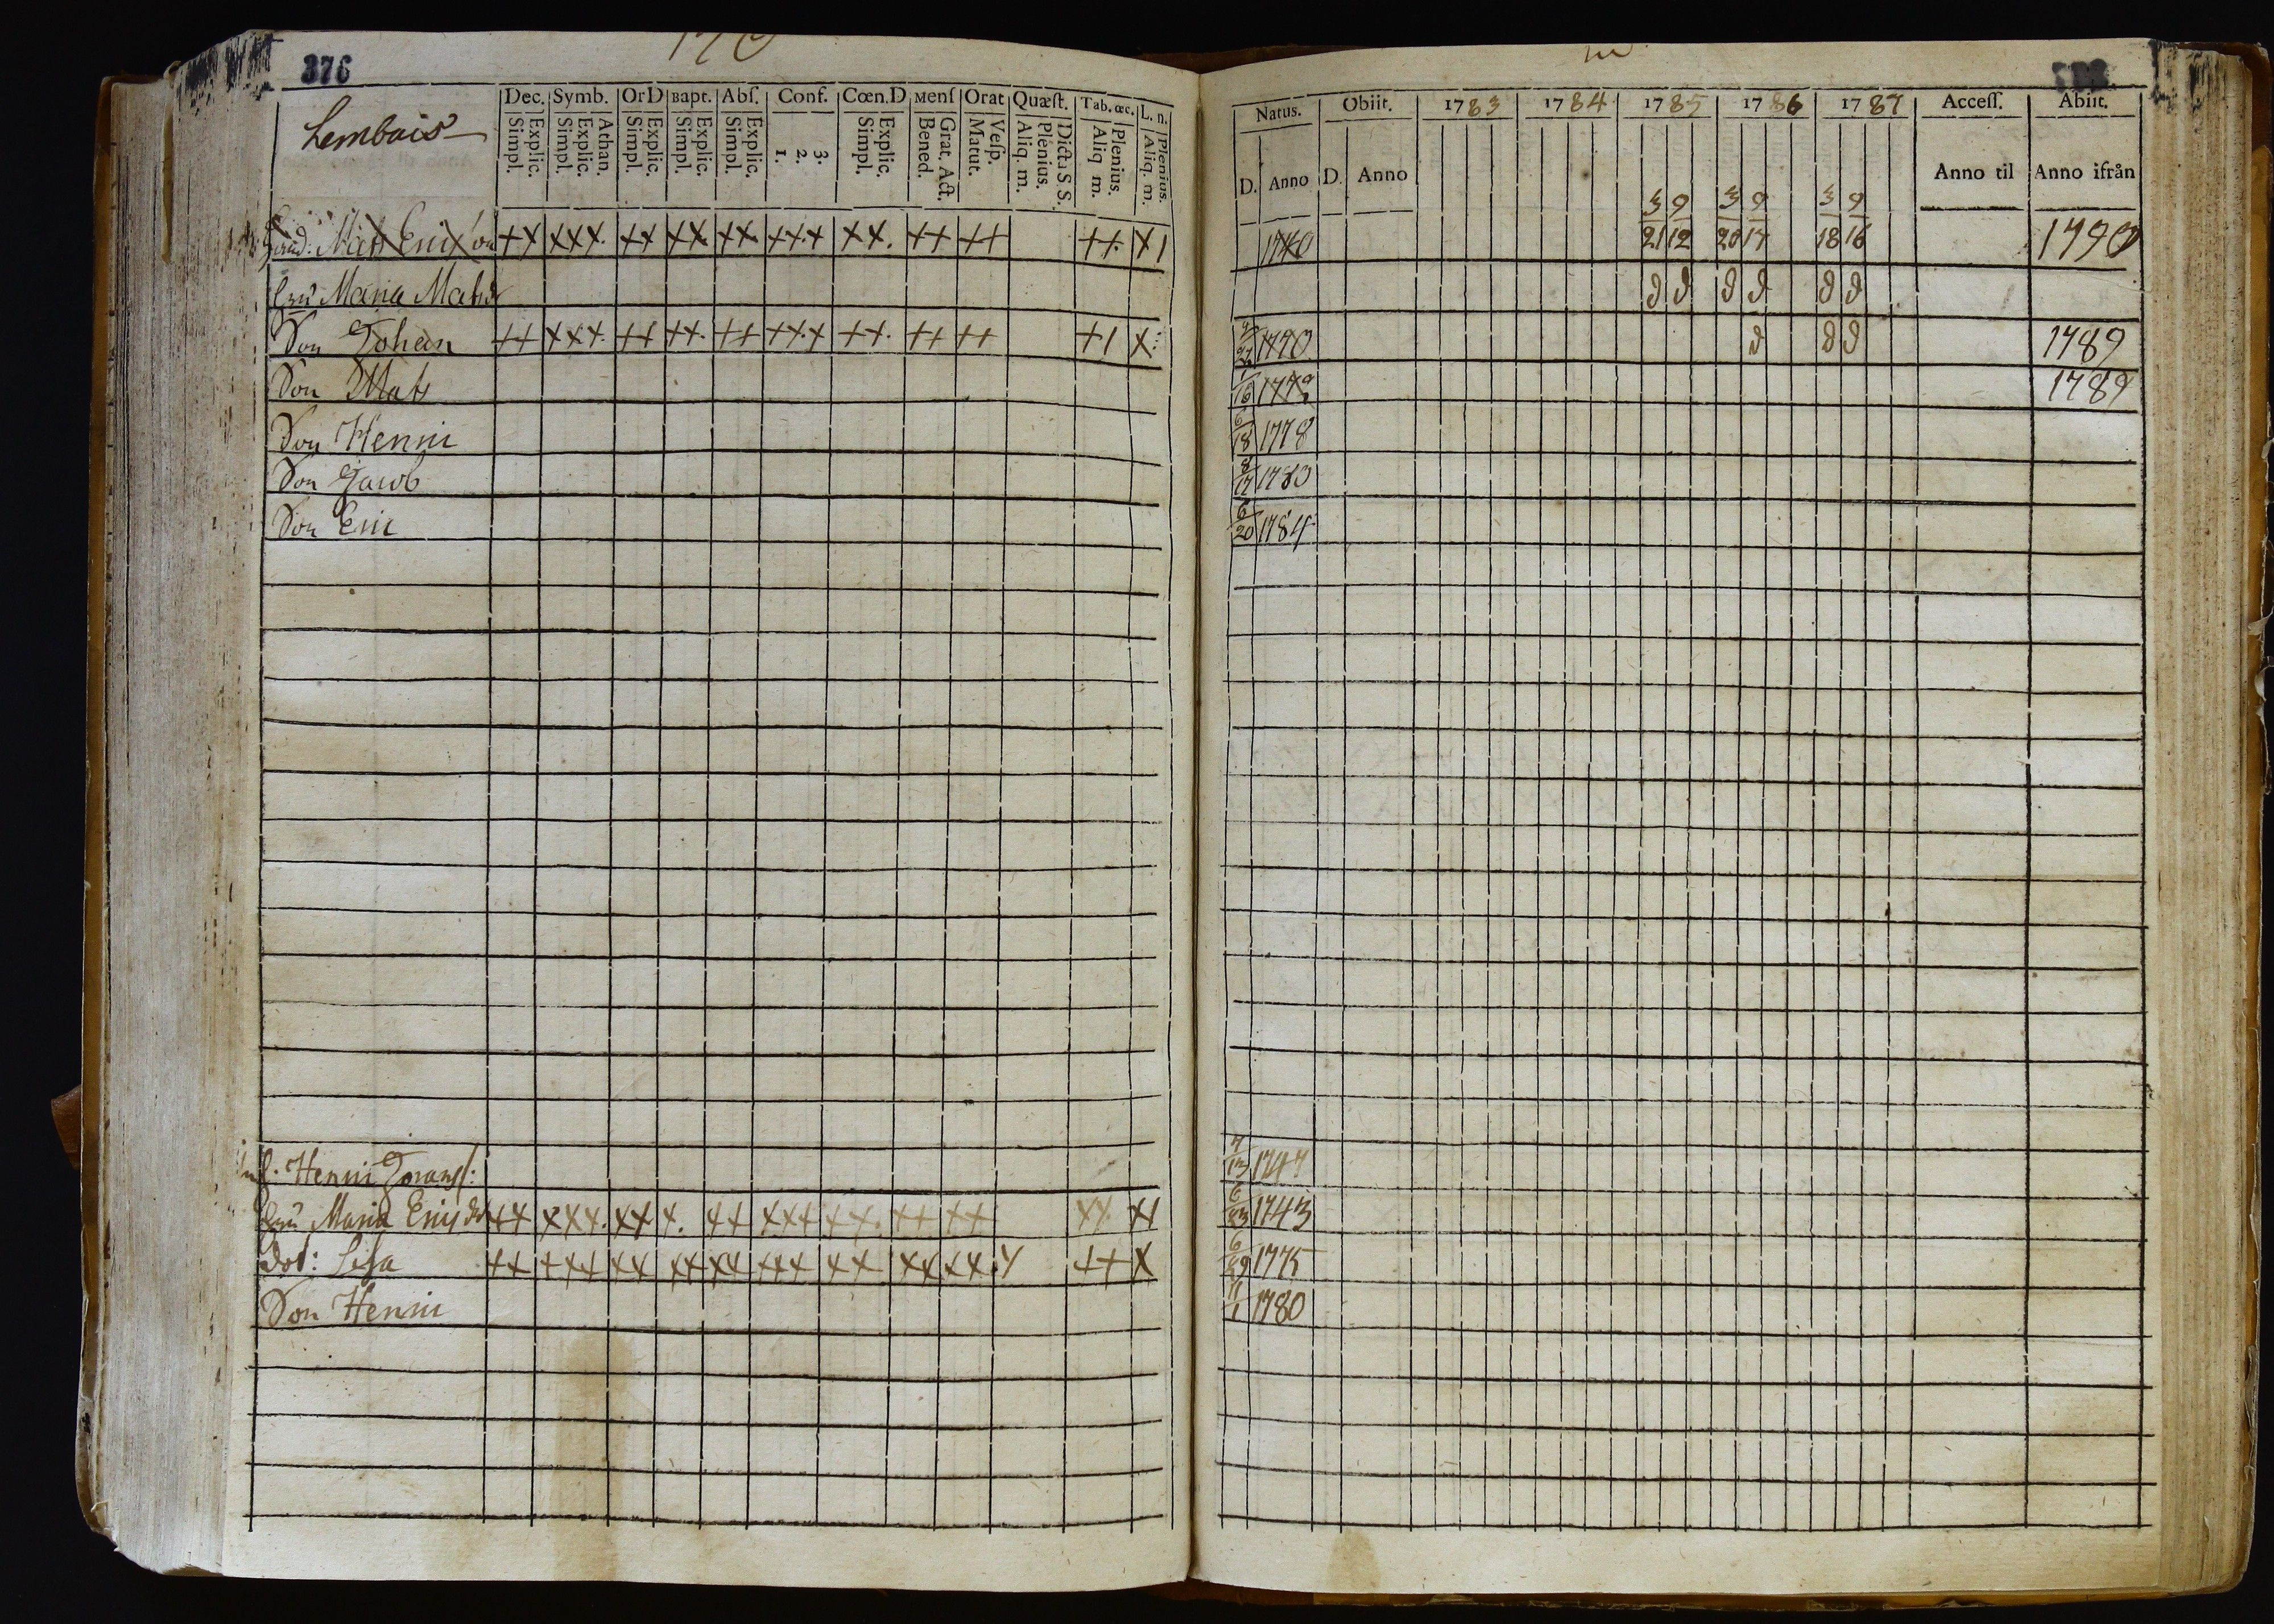 376
Lembois
Dec. Symb. OrD Bapt. Abſ. Conf. Cœn.D Menſ Orat Quæſt. Tab. œc. L. n.
Simpl. Explic. Simpl. Explic. Athan. Simpl. Explic. Simpl. Explic. Simpl. Explic. 1. 2. 3. Simpl. Explic. Bened. Grat. Act. Matut. Veſp. Aliq. m. Plenius. Dicta S S. Aliq m. Plenius. Aliq. m. Plenius.
Natus. Obiit. 1783 1784 1785 1786 1787 Acceſſ. Abiit.
D. Anno D. Anno Anno til Anno ifrån
3 9 3 9 3 9
Mats ++ xxx. ++ xx. xx. xx.x xx. ++ ++ ++. x 1 1740 21 12 20 17 18 16 1790
Maria Matsdr ∂ ∂ ∂ ∂ ∂ ∂
Son Johan ++ xxx. ++ ++. ++ ++.x ++. ++ ++ +1 x 1770 ∂ ∂ ∂ 1789
Son Mats 1/16 1789
Son Henric 6/18 1778
Son Jacob 8/17 1780
Son Eric 6/20 1784
Henric 7/13 1747
Maria ++ xxx. xx x. ++ xxx ++. ++ ++ xx. 1743
dot: Lisa ++ +++ xx xx xx +++ ++ xx xx. y ++ x 6/29 1775
Son Henric 11/1 1780